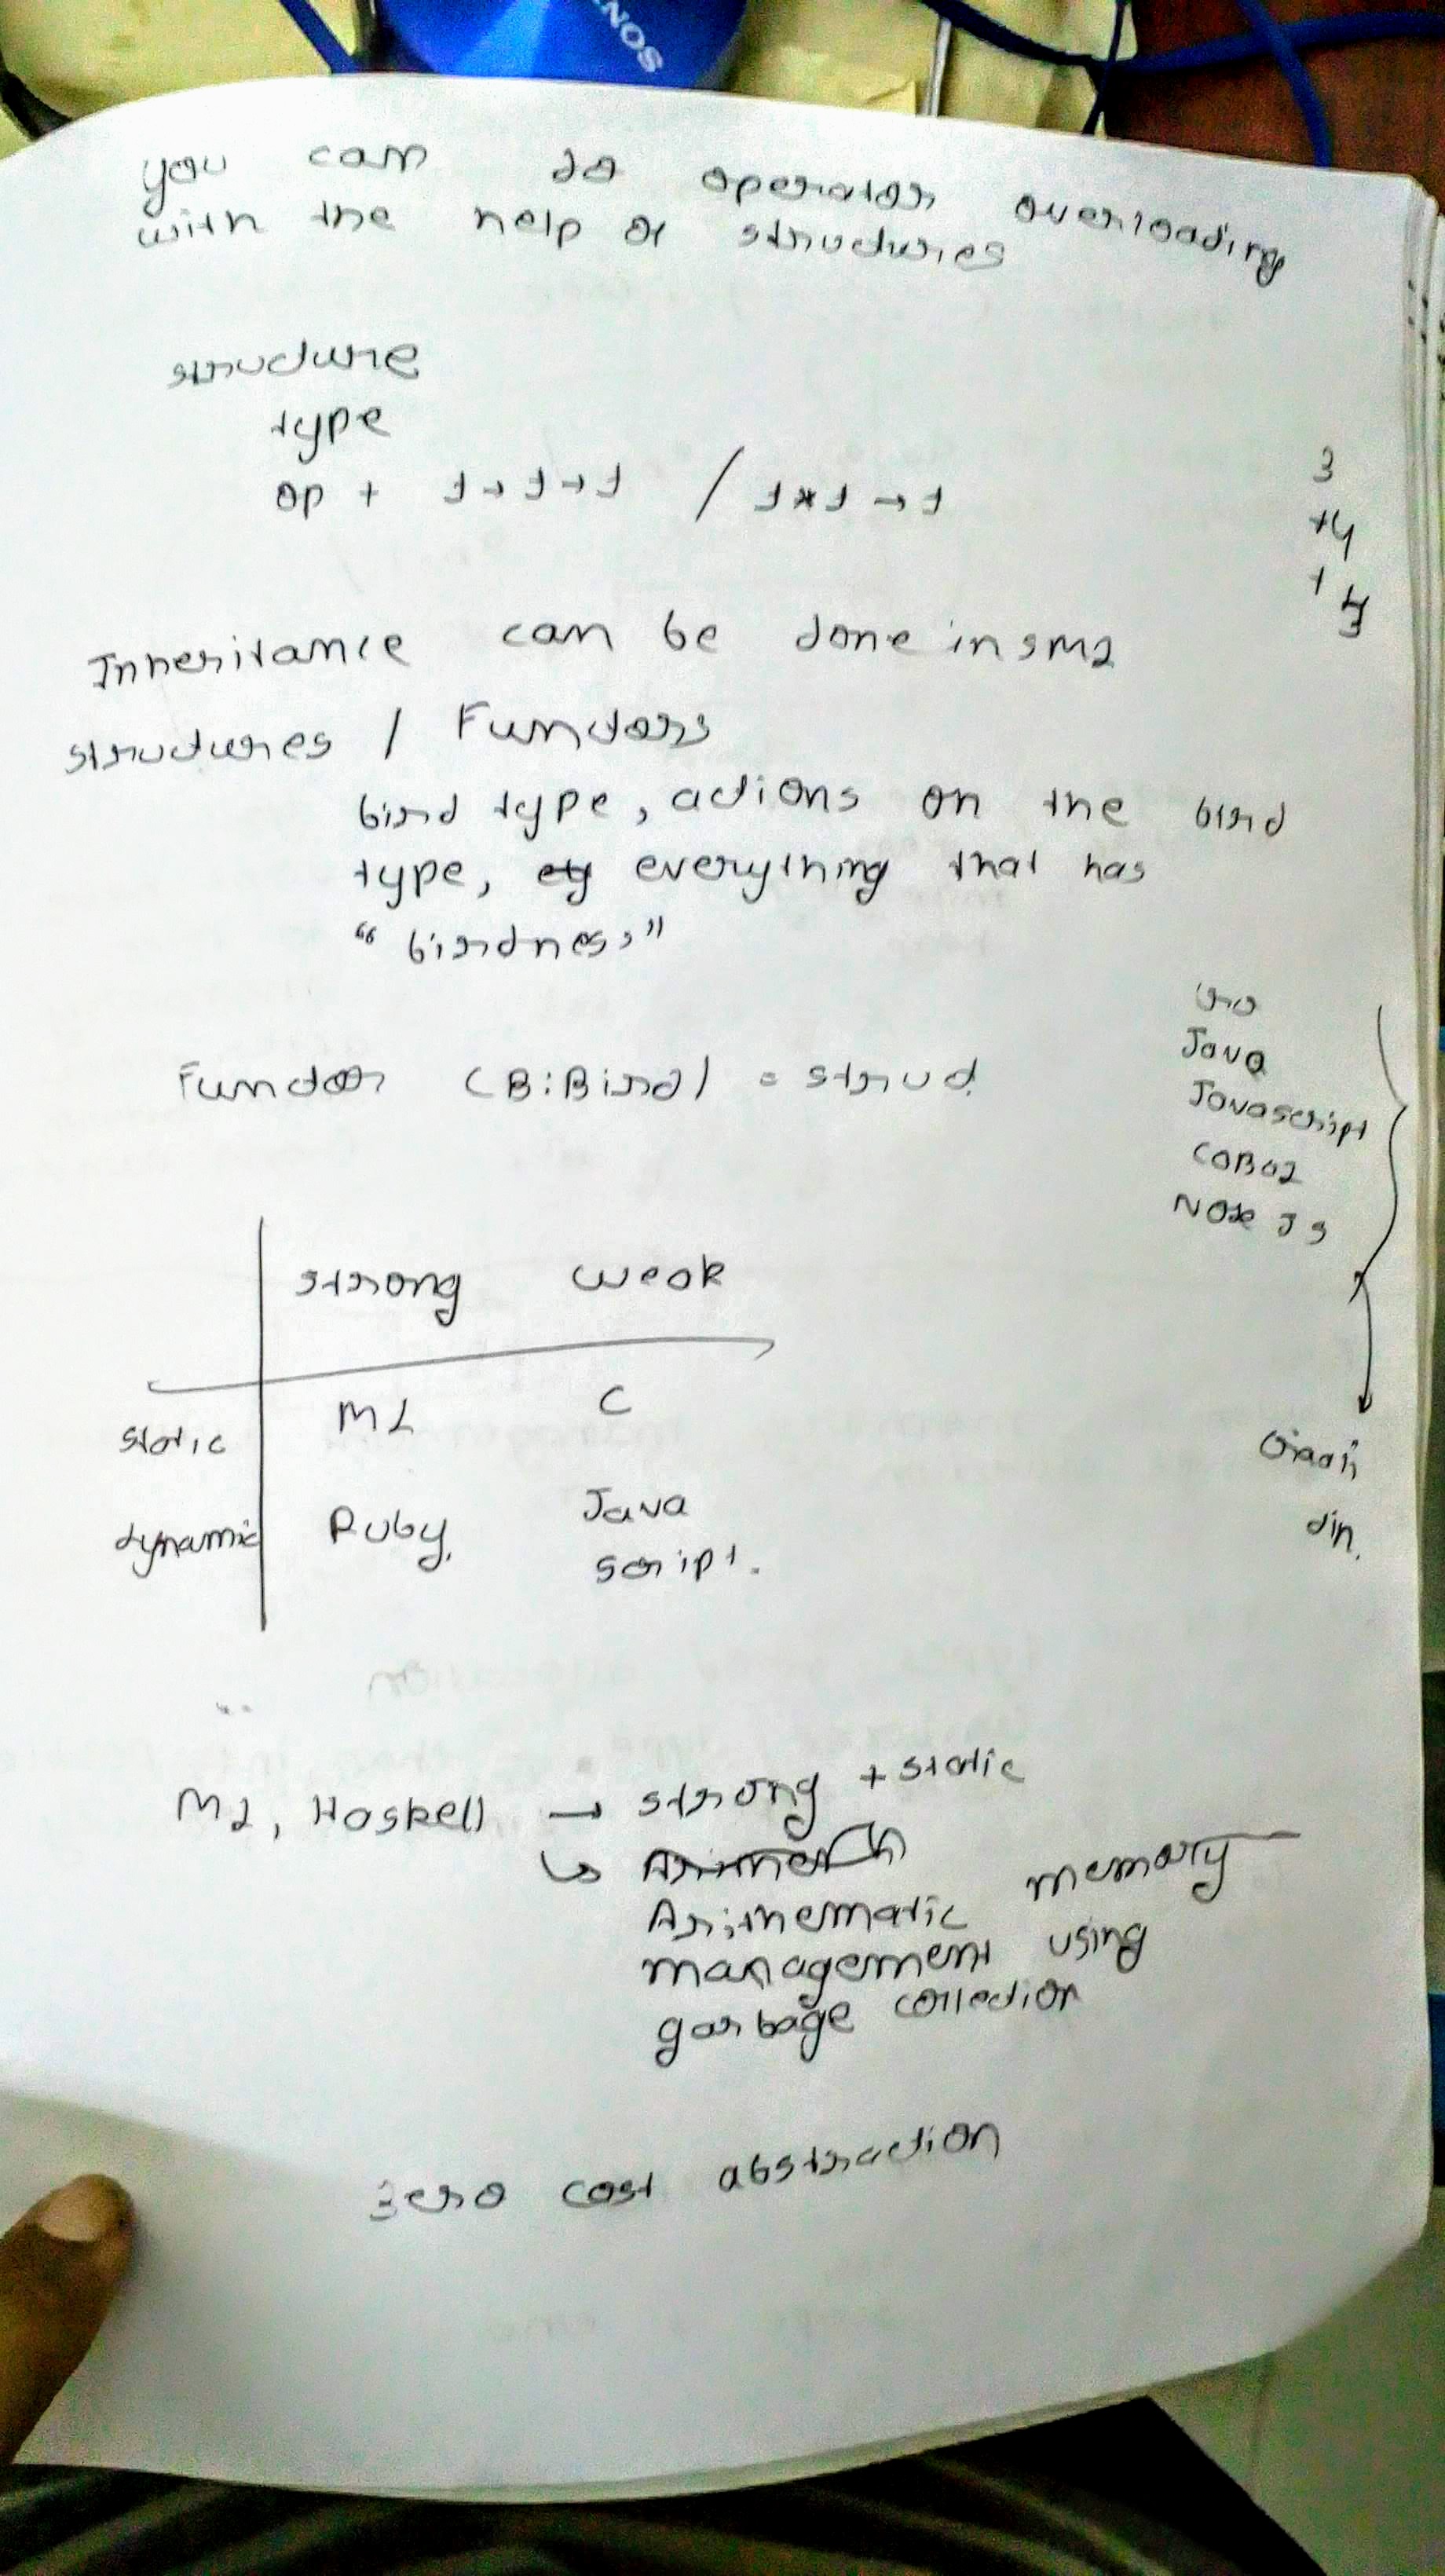 SONY
you can do operator overloading
with the help of structures
structure
type
op + t → t → t / t * t → t
3
+4
Inheritance can be done in SML
structures / Functors
bird type, actions on the bird
type, everything that has
"birdness"
Functor (B:Bird) = struct
Java
Javascript
COBOL
Node JS
strong weak
static ML C
dynamic Ruby. Java
script.
din.
ML, Haskell → strong + static
Arithematic memory
management using
garbage collection
zero cost abstraction